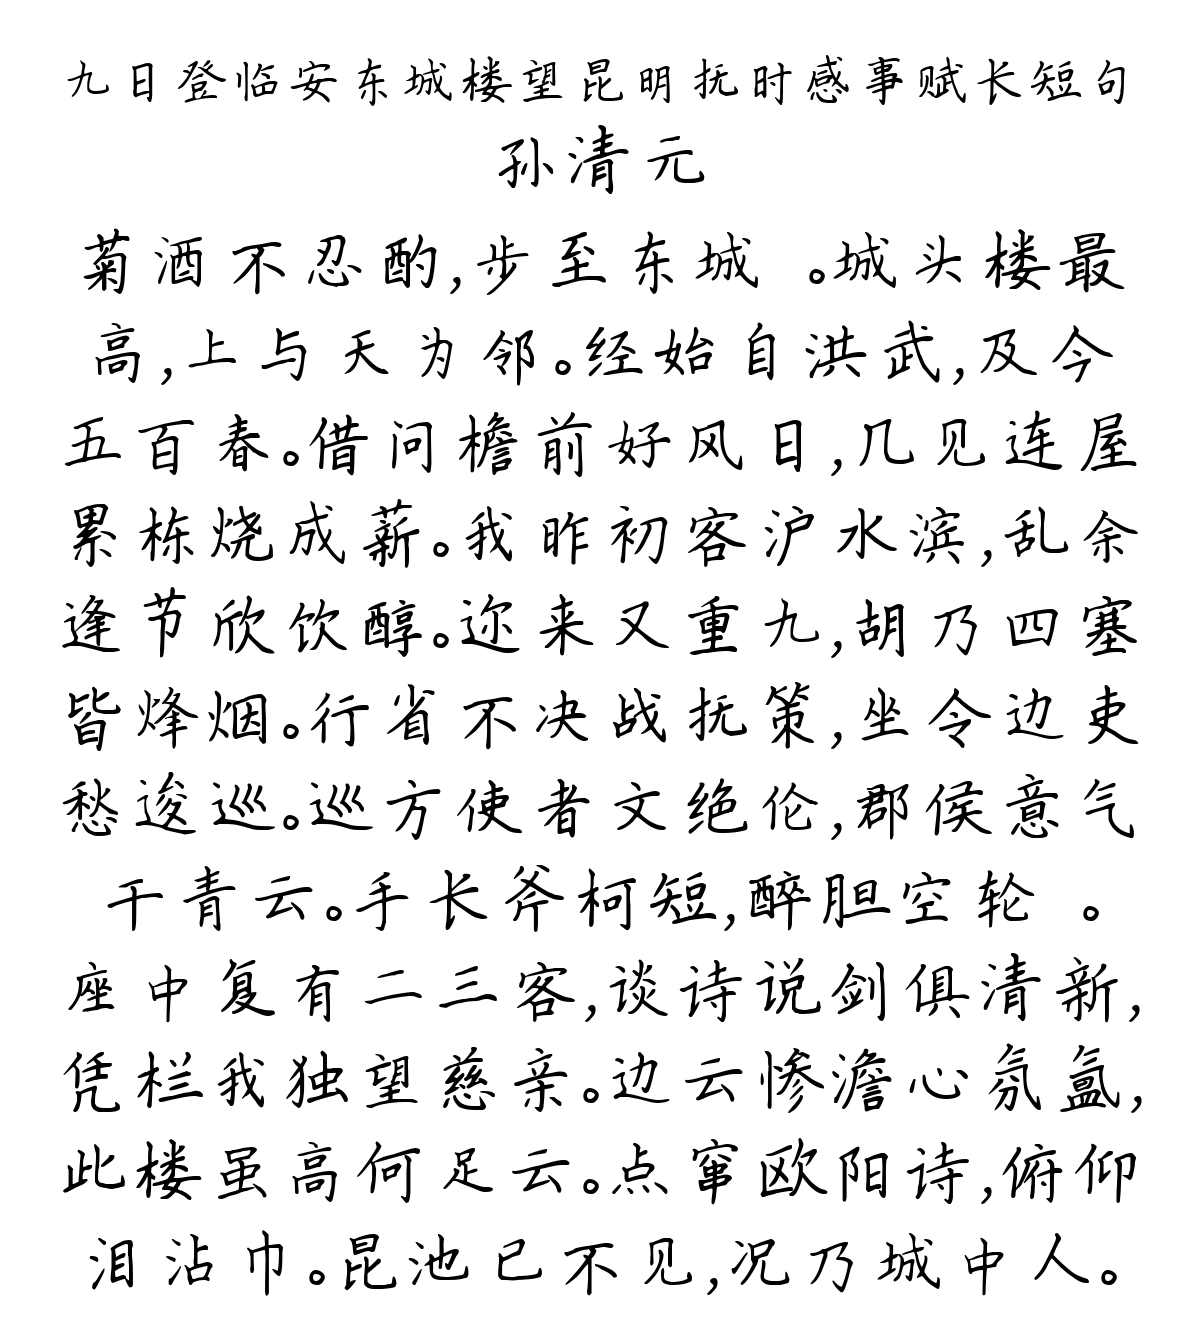 九日登临安东城楼望昆明抚时感事赋长短句
孙清元
菊酒不忍酌,步至东城 。城头楼最
高,上与天为邻。经始自洪武,及今
五百春。借问檐前好风日,几见连屋
累栋烧成薪。我昨初客沪水滨,乱余
逢节欣饮醇。迩来又重九,胡乃四塞
皆烽烟。行省不决战抚策,坐令边吏
愁逡巡。巡方使者文绝伦,郡侯意气
干青云。手长斧柯短,醉胆空轮 。
座中复有二三客,谈诗说剑俱清新,
凭栏我独望慈亲。边云惨澹心氛氲,
此楼虽高何足云。点窜欧阳诗,俯仰
泪沾巾。昆池已不见,况乃城中人。